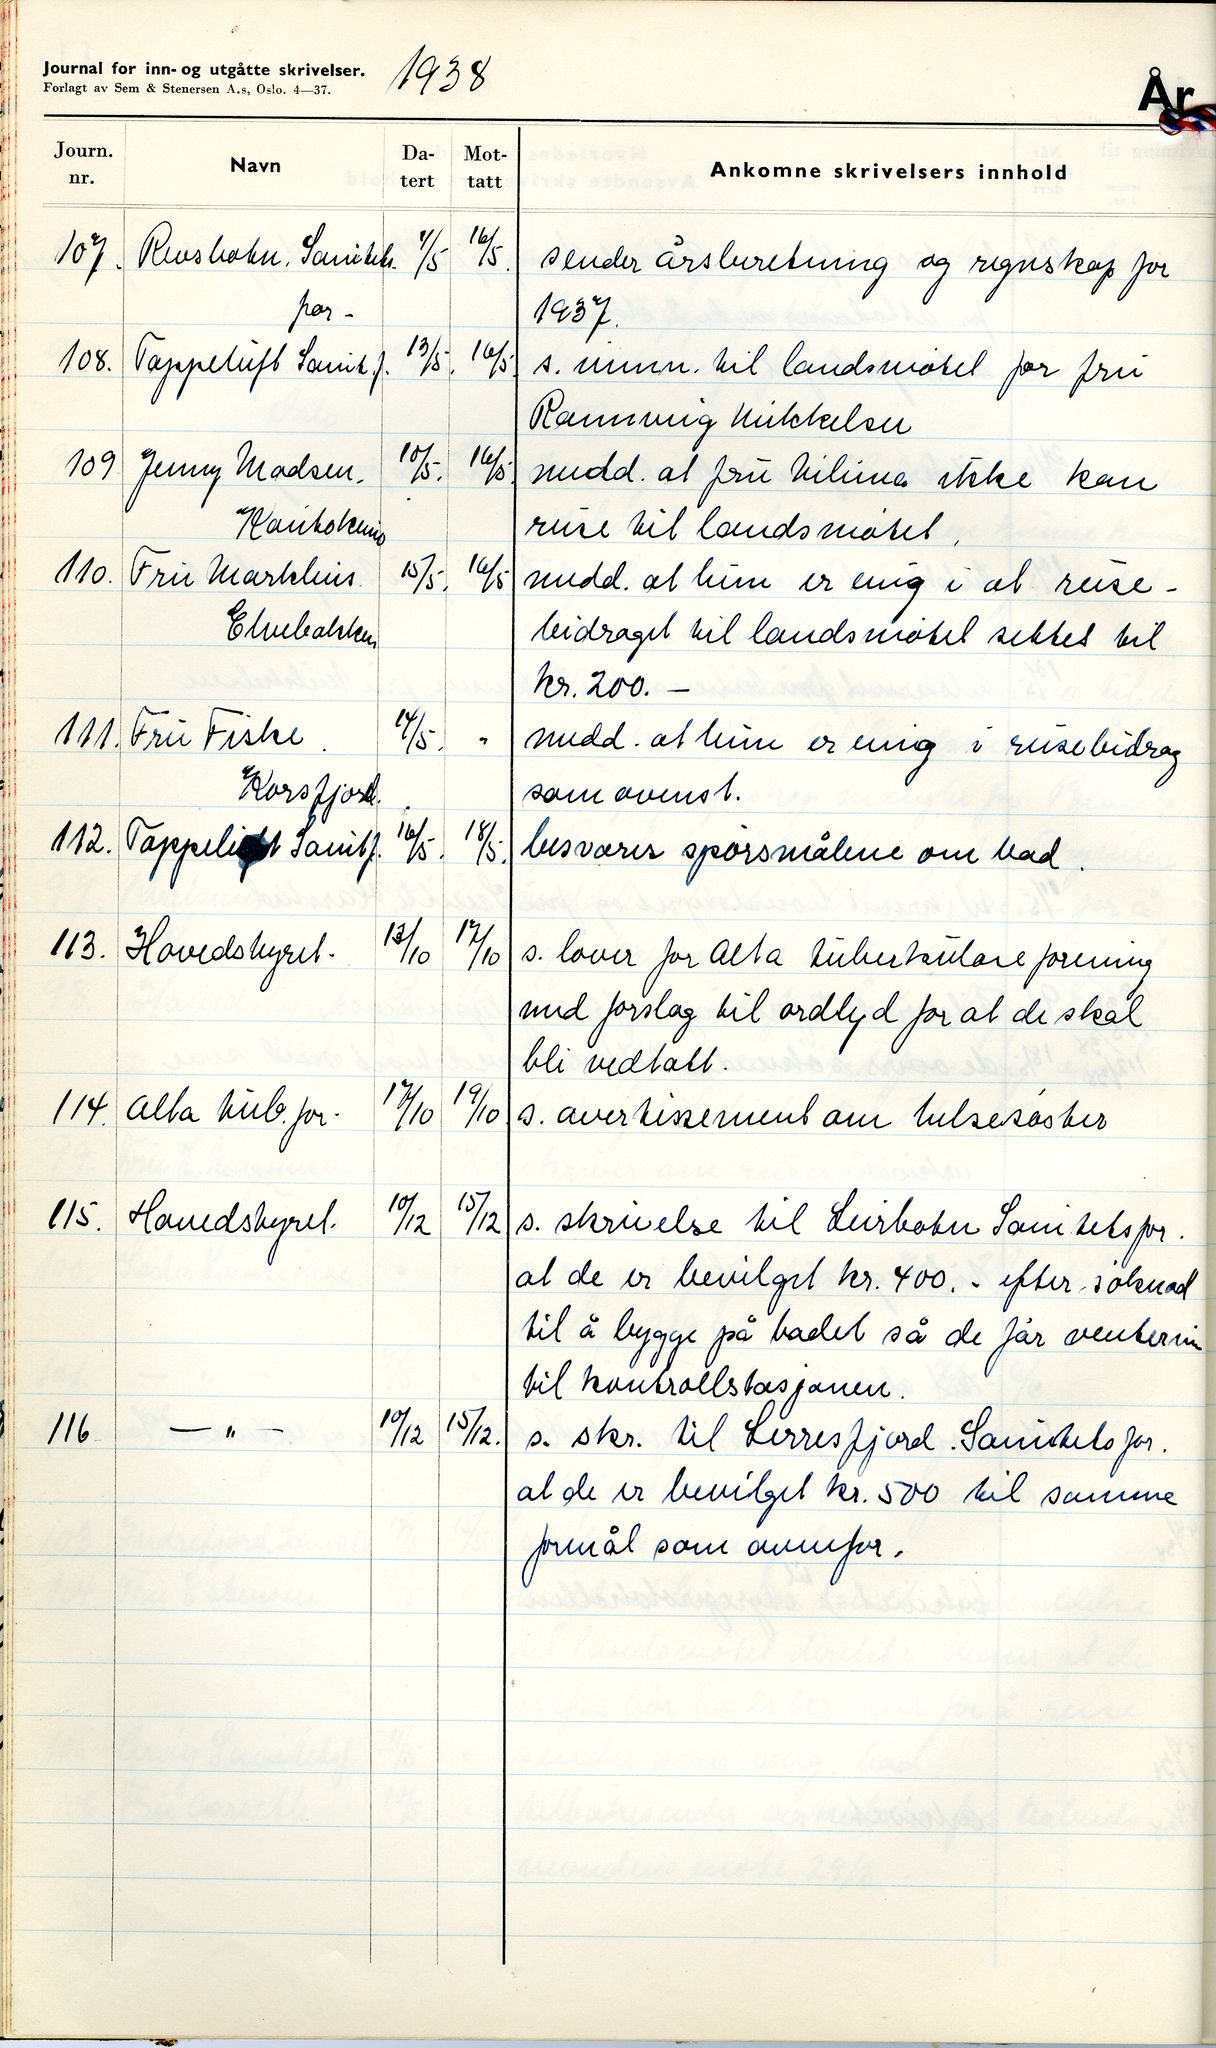 Journal for inn- og utgåtte skrivelser. 1938
Forlagt av Sem & Stenersen A.s, Oslo. 4—37.
År
Journ. nr. Navn Da-tert Mot-tatt Ankomne skrivelsers innhold
107. Revsbotn. Sanitets. 7/5 16/5. sender årsberetning og regnskap for
for - 1937.
108. Tappeluft Sanit.f. 13/5. 16/5. s. innm. til landsmøtet for fru
Rannveig Mikkelsen
109 Jenny Madsen. 10/5. 16/5. medd. at fru ikke kan
Kautokeino reise til landsmøtet.
110. Fru Markhus. 15/5. 16/5 medd. at hun er enig i at reise-
Elvebakken bidraget til landsmøtet settes til
kr. 200. —
111. Fru Fiske. 14/5. " medd. at hun er enig i reisebidrag
Korsfjord. som ovenst.
112. Tappeluft Sanitf. 16/5. 18/5. besvarer spørsmålene om bad.
113. Hovedstyret. 13/10 17/10 s. lover for Alta tuberkuloseforening
med forslag til ordlyd for at de skal
bli vedtatt.
114. Alta tub. for. 17/10 19/10 s. avertissement om helsesøster
115. Hovedstyret. 10/12 15/12 s. skrivelse til Leirbotn Sanitetsfor.
at de er bevilget kr. 400. - efter søknad
til å bygge på badet så de får venterum
til kontrollstasjonen.
116 — " — 10/12 15/12. s. skr. til Lerresfjord. Sanitetsfor.
at de er bevilget kr. 500 til samme
formål som ovenfor.